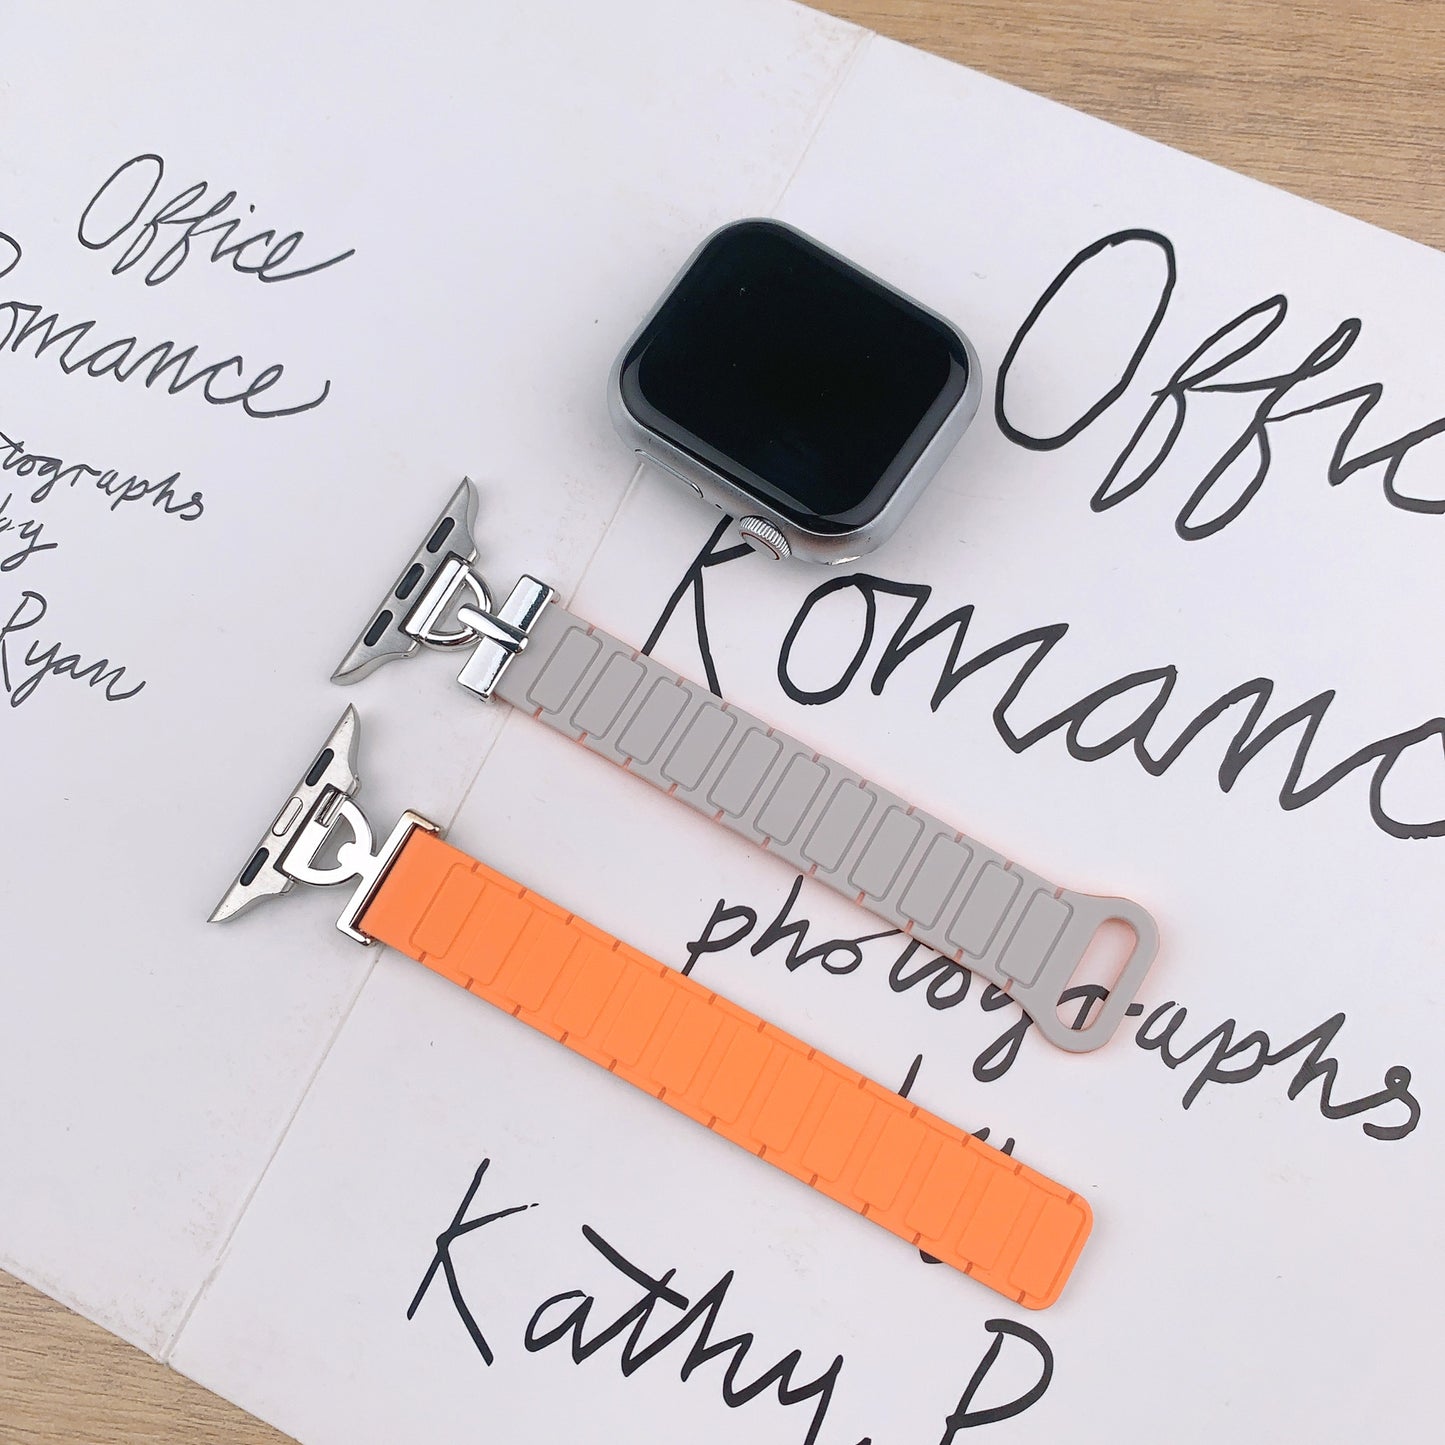 Office
Romance
tographs
by
Ryan
Offic
Romanc
photographs
Kathy R